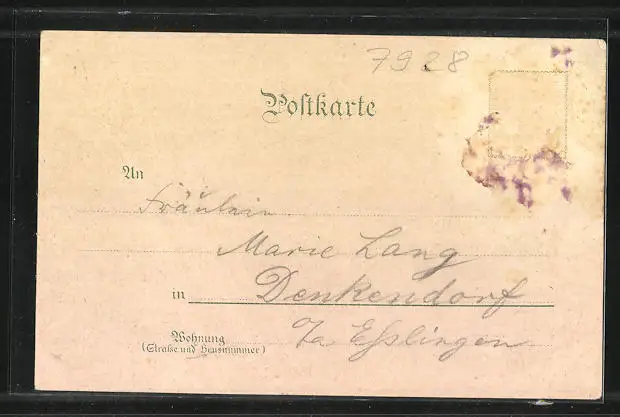 7928
Postkarte
An
Fräulein
Marie Lang
in Denkendorf
Wohnung
(Straße und Hausnummer)
Eßlingen